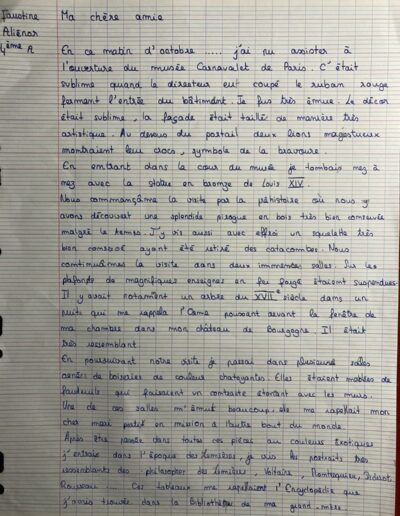 Faustine
Aliénor
4ème A
Ma chère amie
En ce matin d'octobre ..... j'ai pu assister à
l'ouverture du musée Carnavalet de Paris. C'était
sublime quand le directeur eut coupé le ruban rouge
fermant l'entrée du bâtiment. Je fus très émue. Le décor
était sublime, la façade était taillé de manière très
artistique. Au dessus du portail deux lions magestueux
montraient leur crocs, symbole de la bravoure.
En entrant dans la cour du musée je tombais nez à
nez avec la statue en bronze de Louis XIV.
Nous commançâme la visite par la préhistoire où nous y
avons découvert une splendide pirogue en bois très bien conservée
malgré le temps. J'y vis aussi avec effroi un squelette très
bien conservé ayant été retiré des catacombes. Nous
continuâmes la visite dans deux immenses salles. Sur les
plafonds de magnifiques enseignes en feu forgé étaient suspendues.
Il y avait notament un arbre du XVII e siècle dans un
puits qui me rappela l'Orme poussant devant la fenêtre de
ma chambre dans mon château de Bourgogne. Il était
très ressemblant.
En poursuivant notre visite je passai dans plusieurs salles
ornées de boiseries de couleur chatoyantes. Elles étaient meublées de
fauteuils qui faisaient un contraste étonant avec les murs.
Une de ces salles m'émut beaucoup, elle me rappellait mon
cher mari partit en mission à l'autre bout du monde.
Après être passée dans toutes ces pièces au couleurs Exotiques
j'entrais dans l'époque des Lumières, je vis les portraits très
ressemblants des philosopher des Lumière, Voltaire, Montesquieu, Diderot,
Rousseau .... Ces tableaux me rapellaient l'Encyclopédie que
j'avais trouvée dans la Bibliothèque de ma grand-mère.